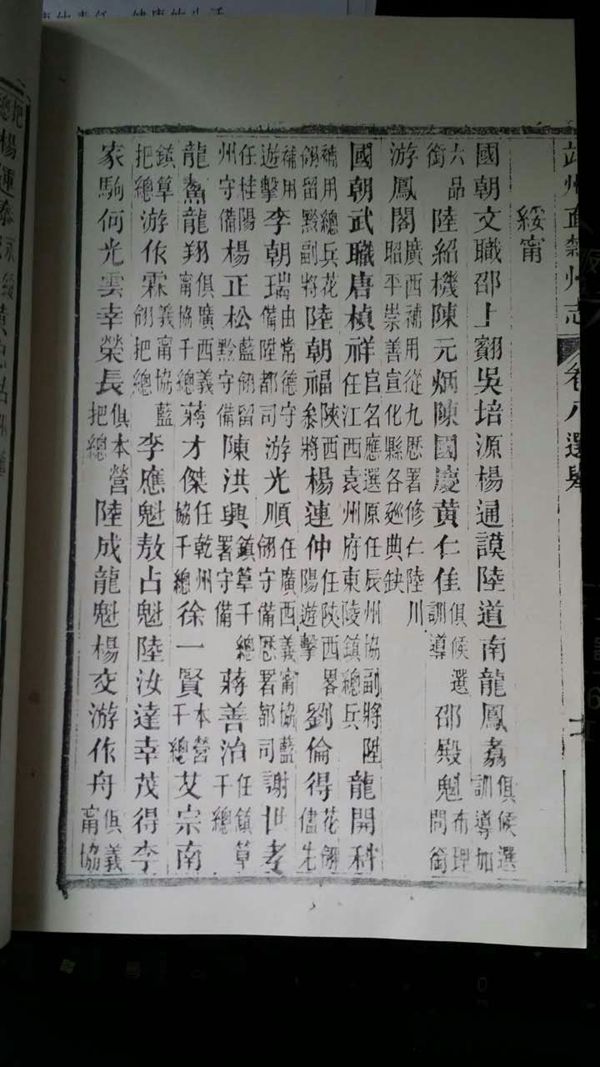 靖州直隸州志 卷八 選舉
綏甯
國朝文職邵上翷吳培源楊通謨陸道南龍鳳嘉俱候選訓導加
六品銜陸紹機陳元炳陳國慶黃仁佳俱候選訓導邵殿魁布理問銜
游鳳閣廣西補用從九歷署修仁陸川昭平崇善宣化縣各廵典缺
國朝武職唐楨祥官名應選原任辰州協副將陞任江西袁州府東陵鎮總兵龍開科
補用總兵花翎留黔副將陸朝福陝西叅將楊連仲任陝西畧陽遊擊劉倫得花翎儘先
補用遊擊李朝瑞由常德守備陞都司游光順任廣西義甯協藍翎守備歷署都司謝世孝
任桂陽州守備楊正松藍翎留黔守備陳洪興鎮草千總署守備蔣善治任鎮草千總
龍熬龍翔俱廣西義甯協千總蔣才傑任乾州協千總徐一賢本營千總艾宗南
鎮草把總游作霖義甯協藍翎把總李應魁敖占魁陸汝達幸茂得李
家駒何光雲幸榮長俱本營把總陸成龍魁楊交游作舟俱義甯協
把總楊運泰